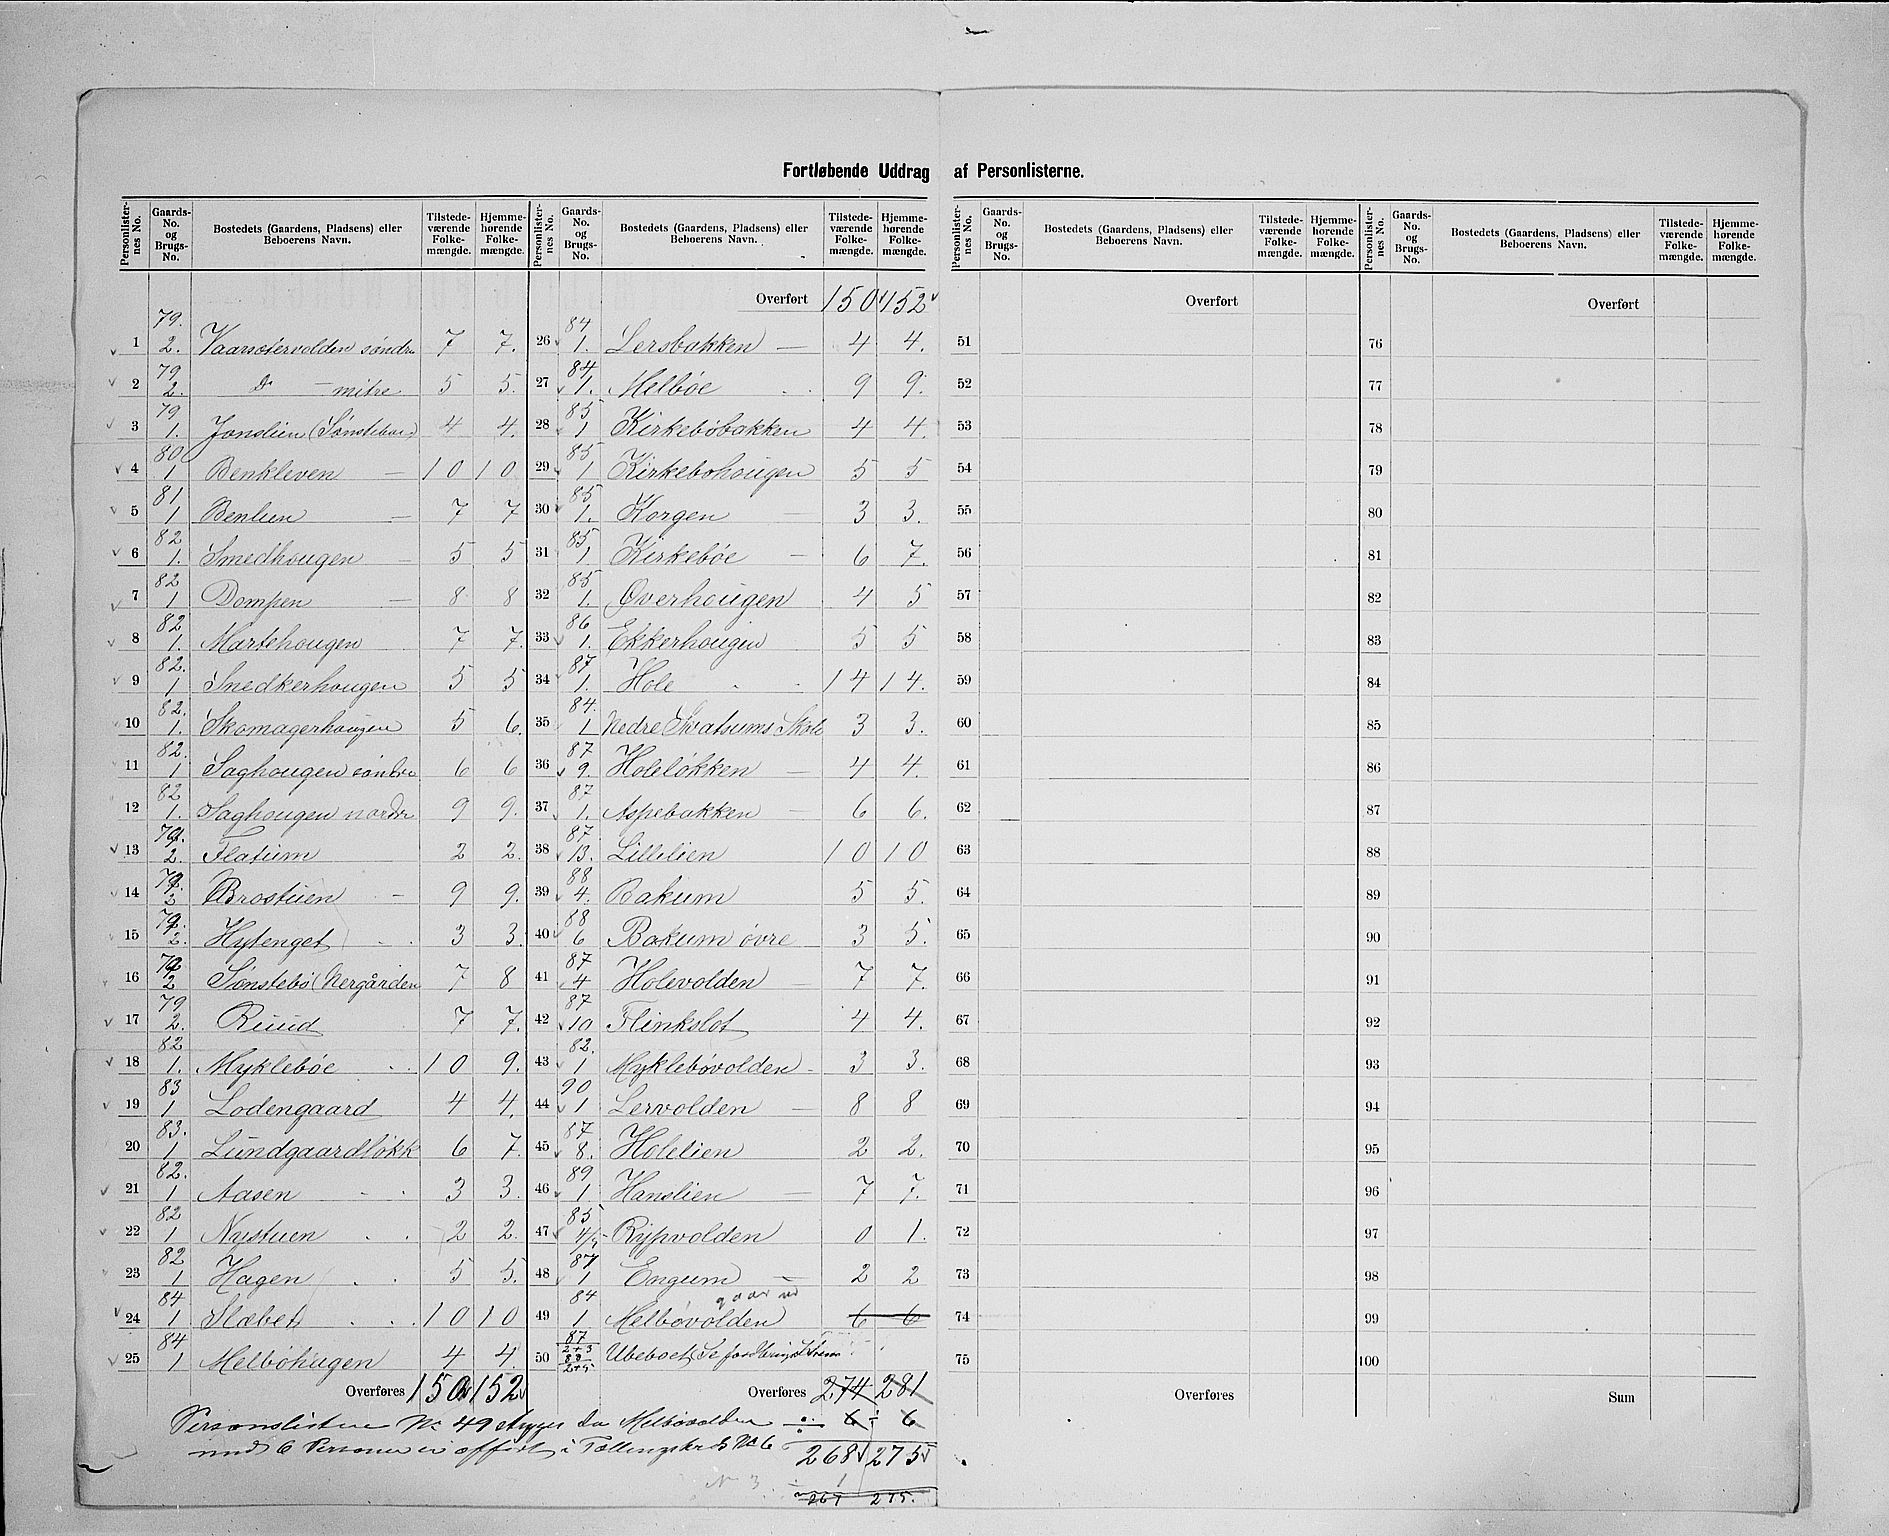 Fortløbende Uddrag af Personlisterne.
Personlister-nes No. | Gaards-No. og Brugs-No. | Bostedets (Gaardens, Pladsens) eller Beboerens Navn. | Tilstede-værende Folke-mængde. | Hjemme-hørende Folke-mængde.
1 79. 2. Vaarsætervolden søndre 7 7.
2 79 2. do — mitre 5 5.
3 79 1. Jonslien (Sønsteboe) 4 4.
4 80 1 Benkleven 10 10
5 81 1 Benlien 7 7
6 82 1. Smedhougen 5 5
7 82 1 Dompen 8 8
8 82 1. Martehougen 7 7.
9 82. 1 Snedkerhougen 5 5
10 82. 1. Skomagerhougen 5 6.
11 82. 1 Saghougen søndre 6 6
12 82 1. Saghougen nordre 9 9.
13 79. 2. Flatum 2 2.
14 79. 2 Brostuen 9 9.
15 79. 2. Hytenget 3 3.
16 79 2 Sønstebø (Nergården 7 8
17 79 2. Ruud 7 7.
18 82 1. Myklebøe 10 9.
19 83 1 Lodengaard 4 4.
20 83. 1 Lundgaardløkk 6 7.
21 82. 1 Aasen 3 3.
22 82 1 Nystuen 2 2.
23 82 1 Hagen 5 5.
24 84 1 Slæbet 10 10
25 84 1 Melbøhugen 4 4.
Overføres 150 152
Personlister-nes No. | Gaards-No. og Brugs-No. | Bostedets (Gaardens, Pladsens) eller Beboerens Navn. | Tilstede-værende Folke-mængde. | Hjemme-hørende Folke-mængde.
Overført 150 152
26 84 1. Lersbakken 4 4.
27 84 1. Melbøe 9 9.
28 85 1 Kirkebøbakken 4 4.
29 85 1 Kirkebøhougen 5 5
30 85 1. Korgen 3 3.
31 85 1 Kirkebøe 6 7.
32 85 1. Øverhougen 4 5
33 86 1. Ekkerhougen 5 5
34 87 1. Hole 14 14.
35 84. 1 Nedre Svatsums Skole 3 3.
36 87 9. Holeløkken 4 4.
37 87 1. Aspebakken 6 6.
38 87 13. Lillelien 10 10
39 88 4. Bakum 5 5.
40 88 6 Bakum øvre 3 5.
41 87 4 Holevolden 7 7.
42 87 10 Flinkslot 4 4.
43 82. 1 Myklebøvolden 3 3.
44 90 1 Lervolden 8 8
45 87 8. Holelien 2 2.
46 89 1 Hanslien 7 7.
47 85 4/5 Rypvolden 0 1.
48 87 1 Engum 2 2
49 84 1 Melbøvolden 6 6
50 87 2+3 88 2+5 Ubeboet
Overføres 274 281
÷ 6 ÷ 6
268 275
÷ 1
267 275.
Personlisten No 49 da Melbøvolden
med 6 Personer er opført i Tællingskreds No 6
N 3.
Personlister-nes No. | Gaards-No. og Brugs-No. | Bostedets (Gaardens, Pladsens) eller Beboerens Navn. | Tilstede-værende Folke-mængde. | Hjemme-hørende Folke-mængde.
Overført
51
52
53
54
55
56
57
58
59
60
61
62
63
64
65
66
67
68
69
70
71
72
73
74
75
Overføres
Personlister-nes No. | Gaards-No. og Brugs-No. | Bostedets (Gaardens, Pladsens) eller Beboerens Navn. | Tilstede-værende Folke-mængde. | Hjemme-hørende Folke-mængde.
Overført
76
77
78
79
80
81
82
83
84
85
86
87
88
89
90
91
92
93
94
95
96
97
98
99
100
Sum